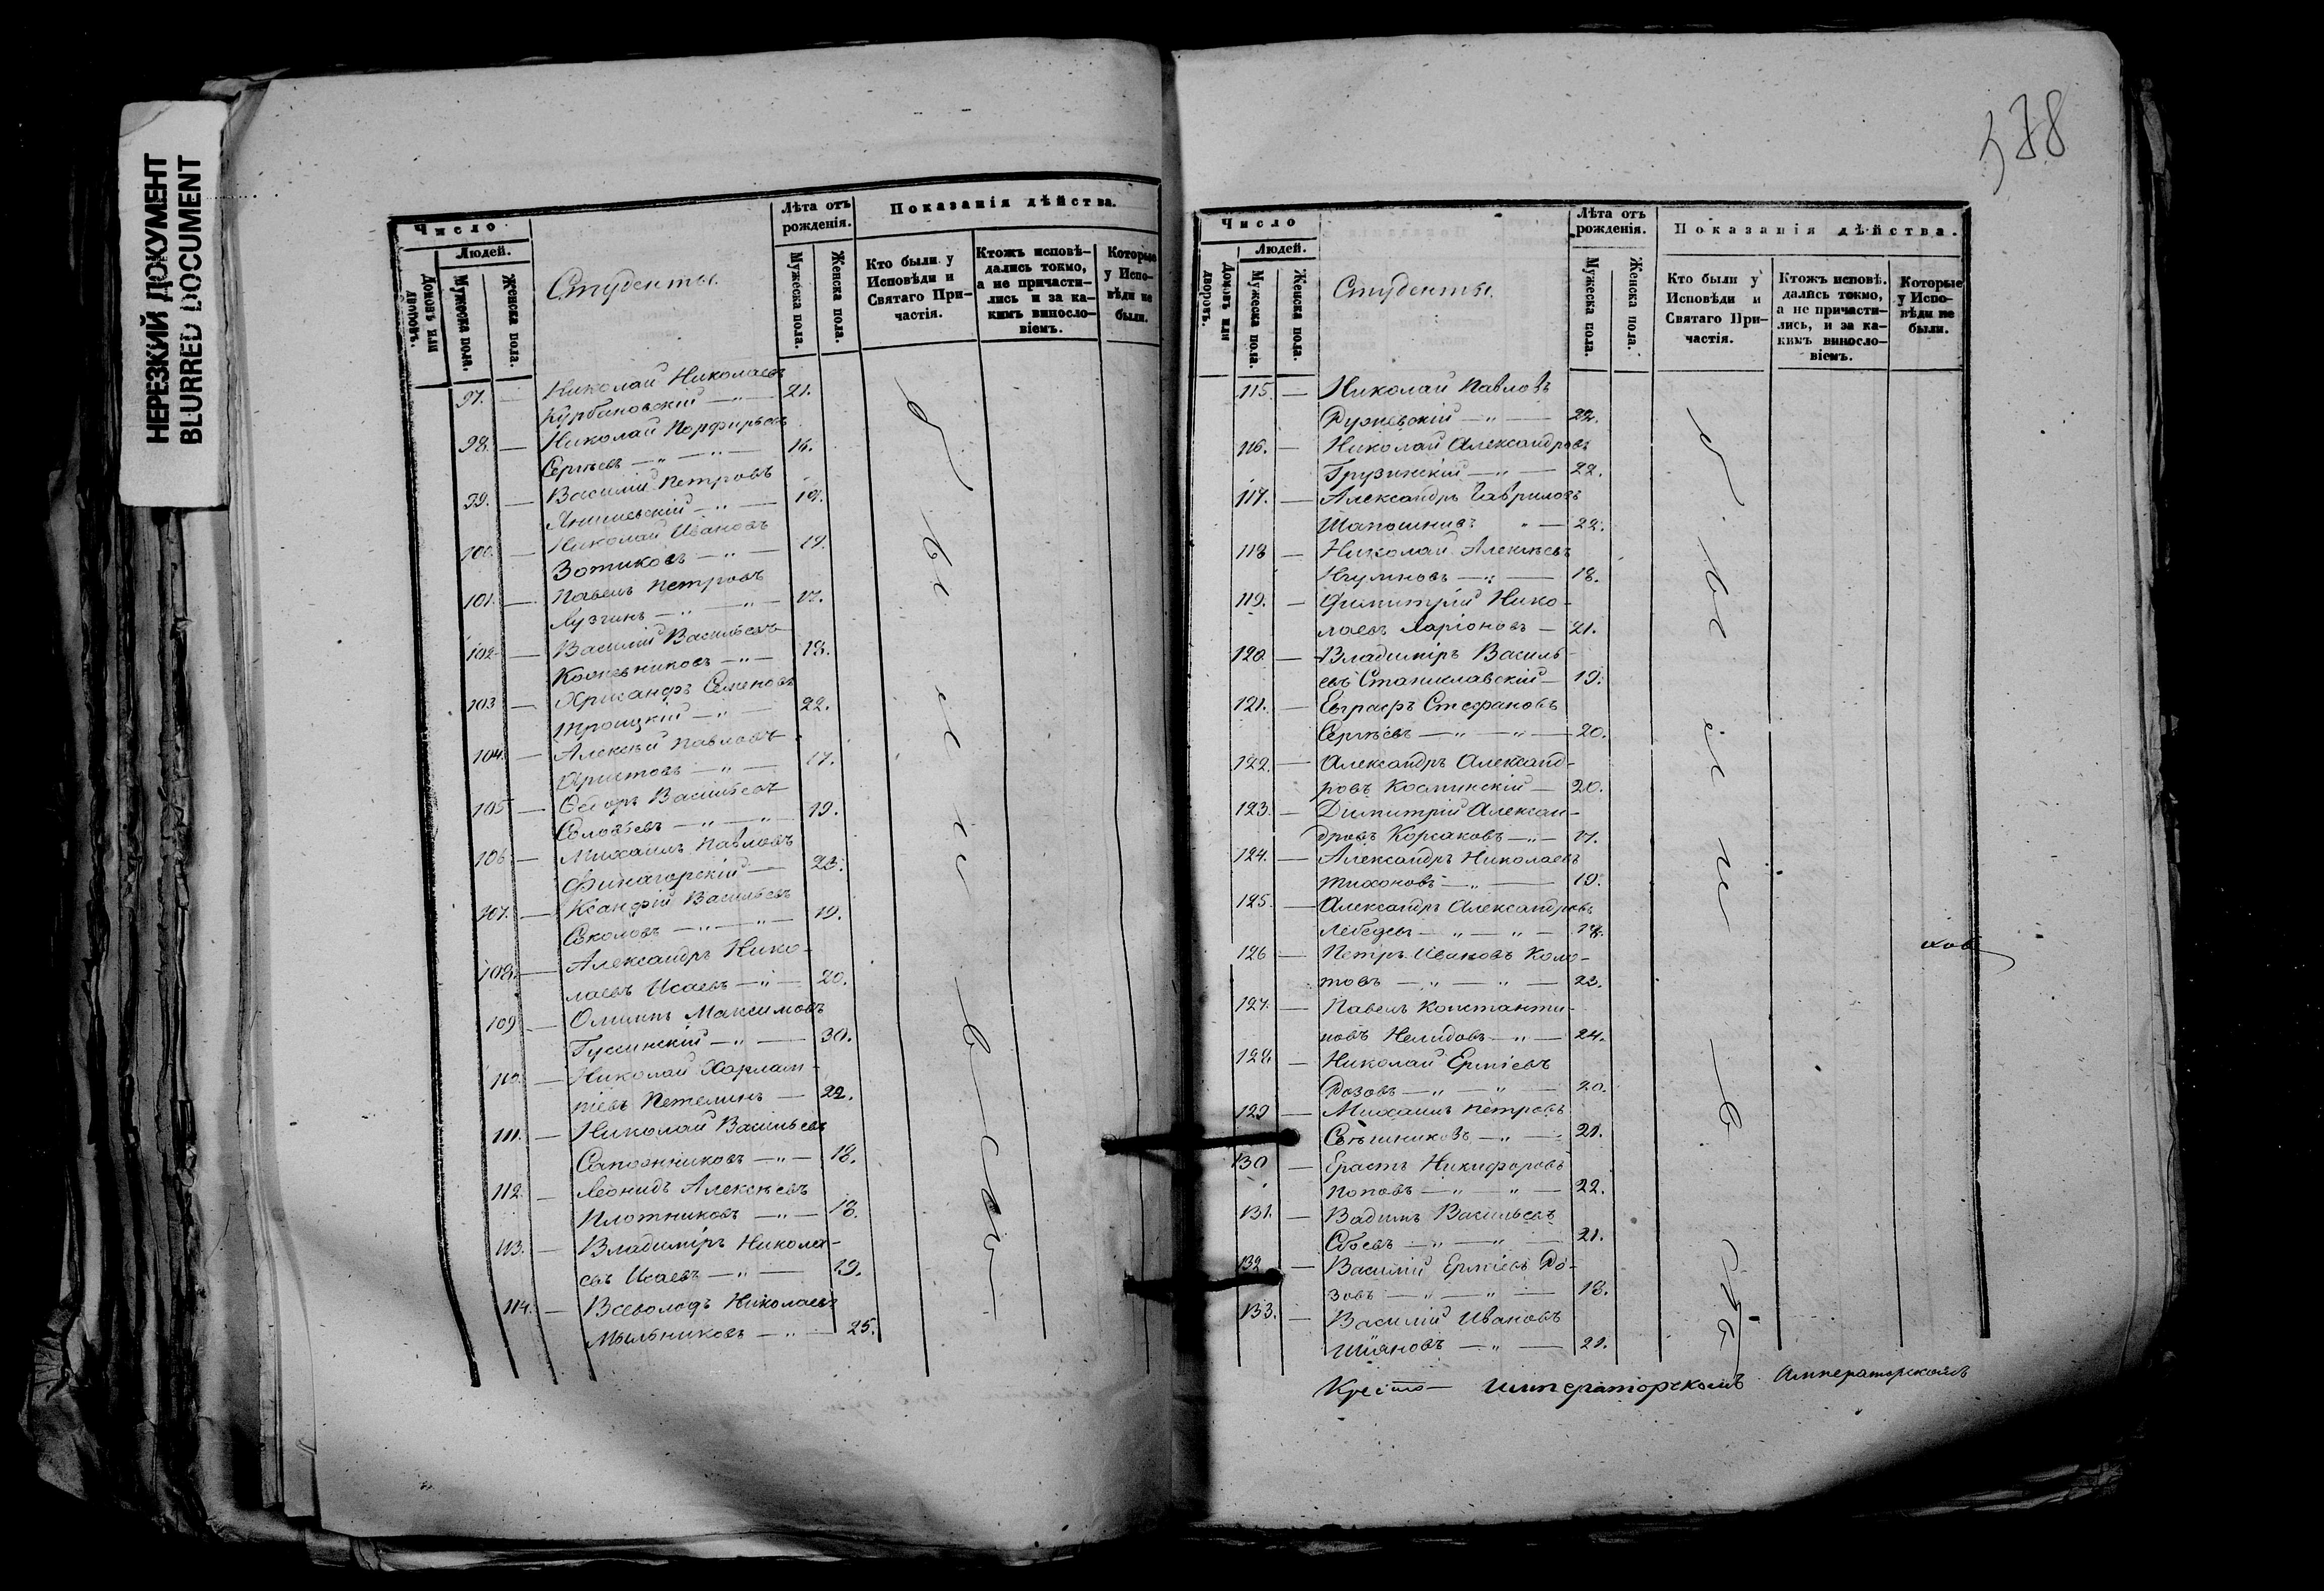 НЕРЕЗКИЙ ДОКУМЕНТ
BLURRED DOCUMENT
Число
Людей.
Домовъ или дворовъ.
Мужеска пола.
Женска пола.
Студенты.
Лѣта отъ рожденія.
Мужеска пола.
Женска пола.
Показанія дѣйства.
Кто были у Исповѣди и Святаго Причастія.
Ктожъ исповѣдались токмо, а не причастились и за какимъ винословіемъ.
Которые у Исповѣди не были.
97. — Николай Николаевъ
Курбановскій — " — 21.
98. — Николай Порфирьевъ
Сергѣевъ — " — " — 16.
99. — Василій Петровъ
Янишевскій — " — 19.
100. — Николай Ивановъ
Зотиковъ — " — 19.
101. — Павелъ Петровъ
Лузгинъ — " — " — 17.
102. — Василій Васильевъ
Кожевниковъ — " — 18.
103 — Хрисанфъ Семеновъ
Троицкій — " — 22.
104. — Алексѣй Павловъ
Аристовъ — " — 17.
105 — Ѳедоръ Васильевъ
Соловьевъ — " — " — 19.
106 — Михаилъ Павловъ
Финагорскій — 23.
107. — Ксанфій Васильевъ
Соколовъ — " — " — 19.
108. — Александръ Нико-
лаевъ Исаевъ — " — 20.
109 — Максимовъ
— " — 30.
110. — Николай Харлам-
піевъ Петелинъ — 22.
111. — Николай Васильевъ
Сапожниковъ — " — 18.
112. — Леонидъ Алексѣевъ
Плотниковъ — " — 18.
113. — Владиміръ Никола-
евъ Исаевъ — " — 19.
114. — Всеволодъ Николаевъ
Мыльниковъ — " — 25.
578
Число
Людей.
Домовъ или дворовъ.
Мужеска пола.
Женска пола.
Студенты.
Лѣта отъ рожденія.
Мужеска пола.
Женска пола.
Показанія дѣйства.
Кто были у Исповѣди и Святаго Причастія.
Ктожъ исповѣдались токмо, а не причастились, и за какимъ винословіемъ.
Которые у Исповѣди не были.
115. — Николай Павловъ
Ружевскій — " — 22.
116. — Николай Александровъ
Грузинскій — " — 22.
117. — Александръ Гавриловъ
" — 22.
118 — Николай Алексѣевъ
— " — 18.
119. — Димитрій Нико-
лаевъ Ларіоновъ — 21.
120 — Владиміръ Василь-
евъ Станиславскій — 19.
121. — Евграфъ Стефановъ
Сергѣевъ — " — " — 20.
122. — Александръ Александ-
ровъ Косминскій — 20.
123. — Димитрій Алексан-
дровъ Корсаковъ — " — 17.
124. — Александръ Николаевъ
Тихоновъ — " — 19.
125. — Александръ Александровъ
Лебедевъ — " — " — 18.
126 — Петръ Ивановъ Коло-
товъ — " — " — 23.
127. — Павелъ Константи-
новъ Нелидовъ — " — 24.
128. — Николай Ерміевъ
Розовъ — " — " — 20.
129 — Михаилъ Петровъ
Свѣшниковъ — " — 21.
130 — Ерастъ Никифоровъ
Поповъ — " — " — 22.
131. — Вадимъ Васильевъ
Сбоевъ — " — " — 21.
132 — Василій Ерміевъ Ро-
зовъ — " — " — 18.
133. — Василій Ивановъ
— " — 21.
Императорскомъ Императорскомъ